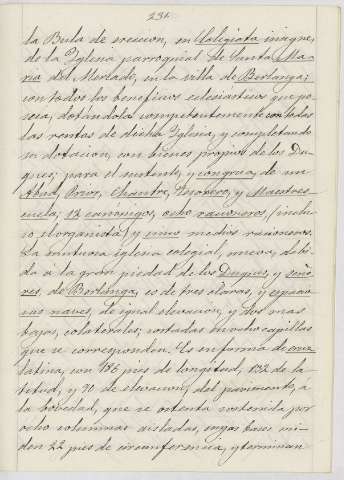 231.
la Bula de ereccion, en Colegiata insigne,
de la Iglesia parroquial de Santa Ma-
ria del Mercado, en la villa de Berlanga;
con todos los beneficios eclesiasticos que po-
seia, dotándola competentemente con todas
las rentas de dicha Iglesia, y completando
su dotacion, con bienes propios de los Du-
ques; para el sustento, y congrua, de un
Abad, Prior, Chantre, Tesorero, y Maestres-
cuela; 12 canónigos, ocho racioneros (inclu-
so el organista) y cinco medios racioneros.
La suntuosa iglesia colegial, nueva, debi-
da á la gran piedad de los Duques, y seño-
res, de Berlanga, es de tres claras, y espacio-
sas naves, de igual elevacion, y dos mas
bajas, colaterales, cortadas en ocho capillas
que se corresponden. Es en forma de cruz
latina, con 186 pies de longitud, 132 de la-
titud, y 90 de elevacion, del pavimento, á
la bobedad, que se ostenta sostenida por
ocho columnas aisladas, cuyas bases mi-
den 22 pies de circunferencia, y terminan